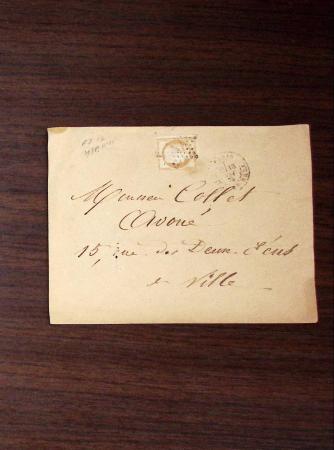 Monsieur Collet
Avoué
15, rue des Deux-Écus
en Ville